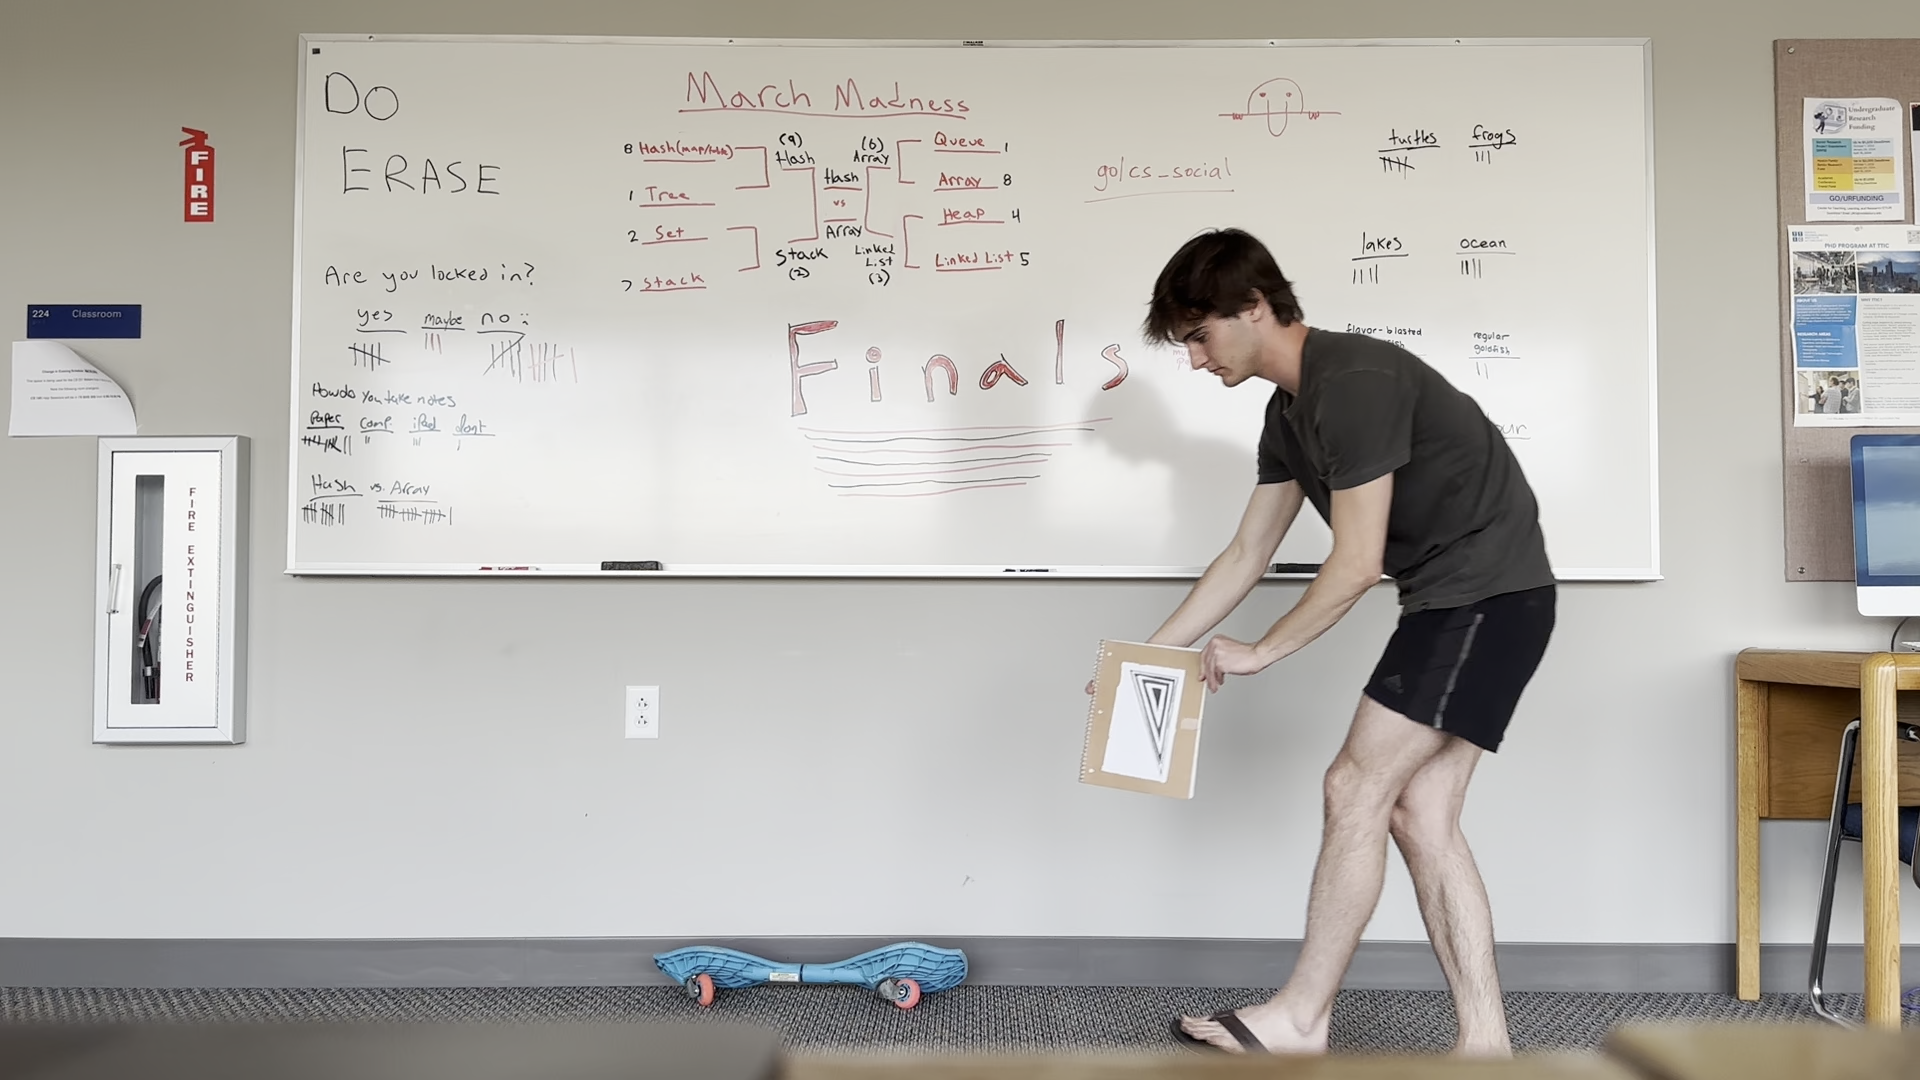 DO
ERASE
Are you locked in?
yes maybe no :
How do you take notes
Paper comp. iPad dont
Hash vs. Array
March Madness
8 Hash(map/table)
1 Tree
2 Set
7 Stack
(9)
Hash
Stack
(2)
Hash
vs
Array
(6)
Array
Linked
List
(3)
Queue 1
Array 8
Heap 4
Linked List 5
Finals
go/cs_social
turtles frogs
lakes ocean
flavor-blasted
regular
goldfish
FIRE
224 Classroom
FIRE EXTINGUISHER
Undergraduate
Research
Funding
GO/URFUNDING
PHD PROGRAM AT TTIC